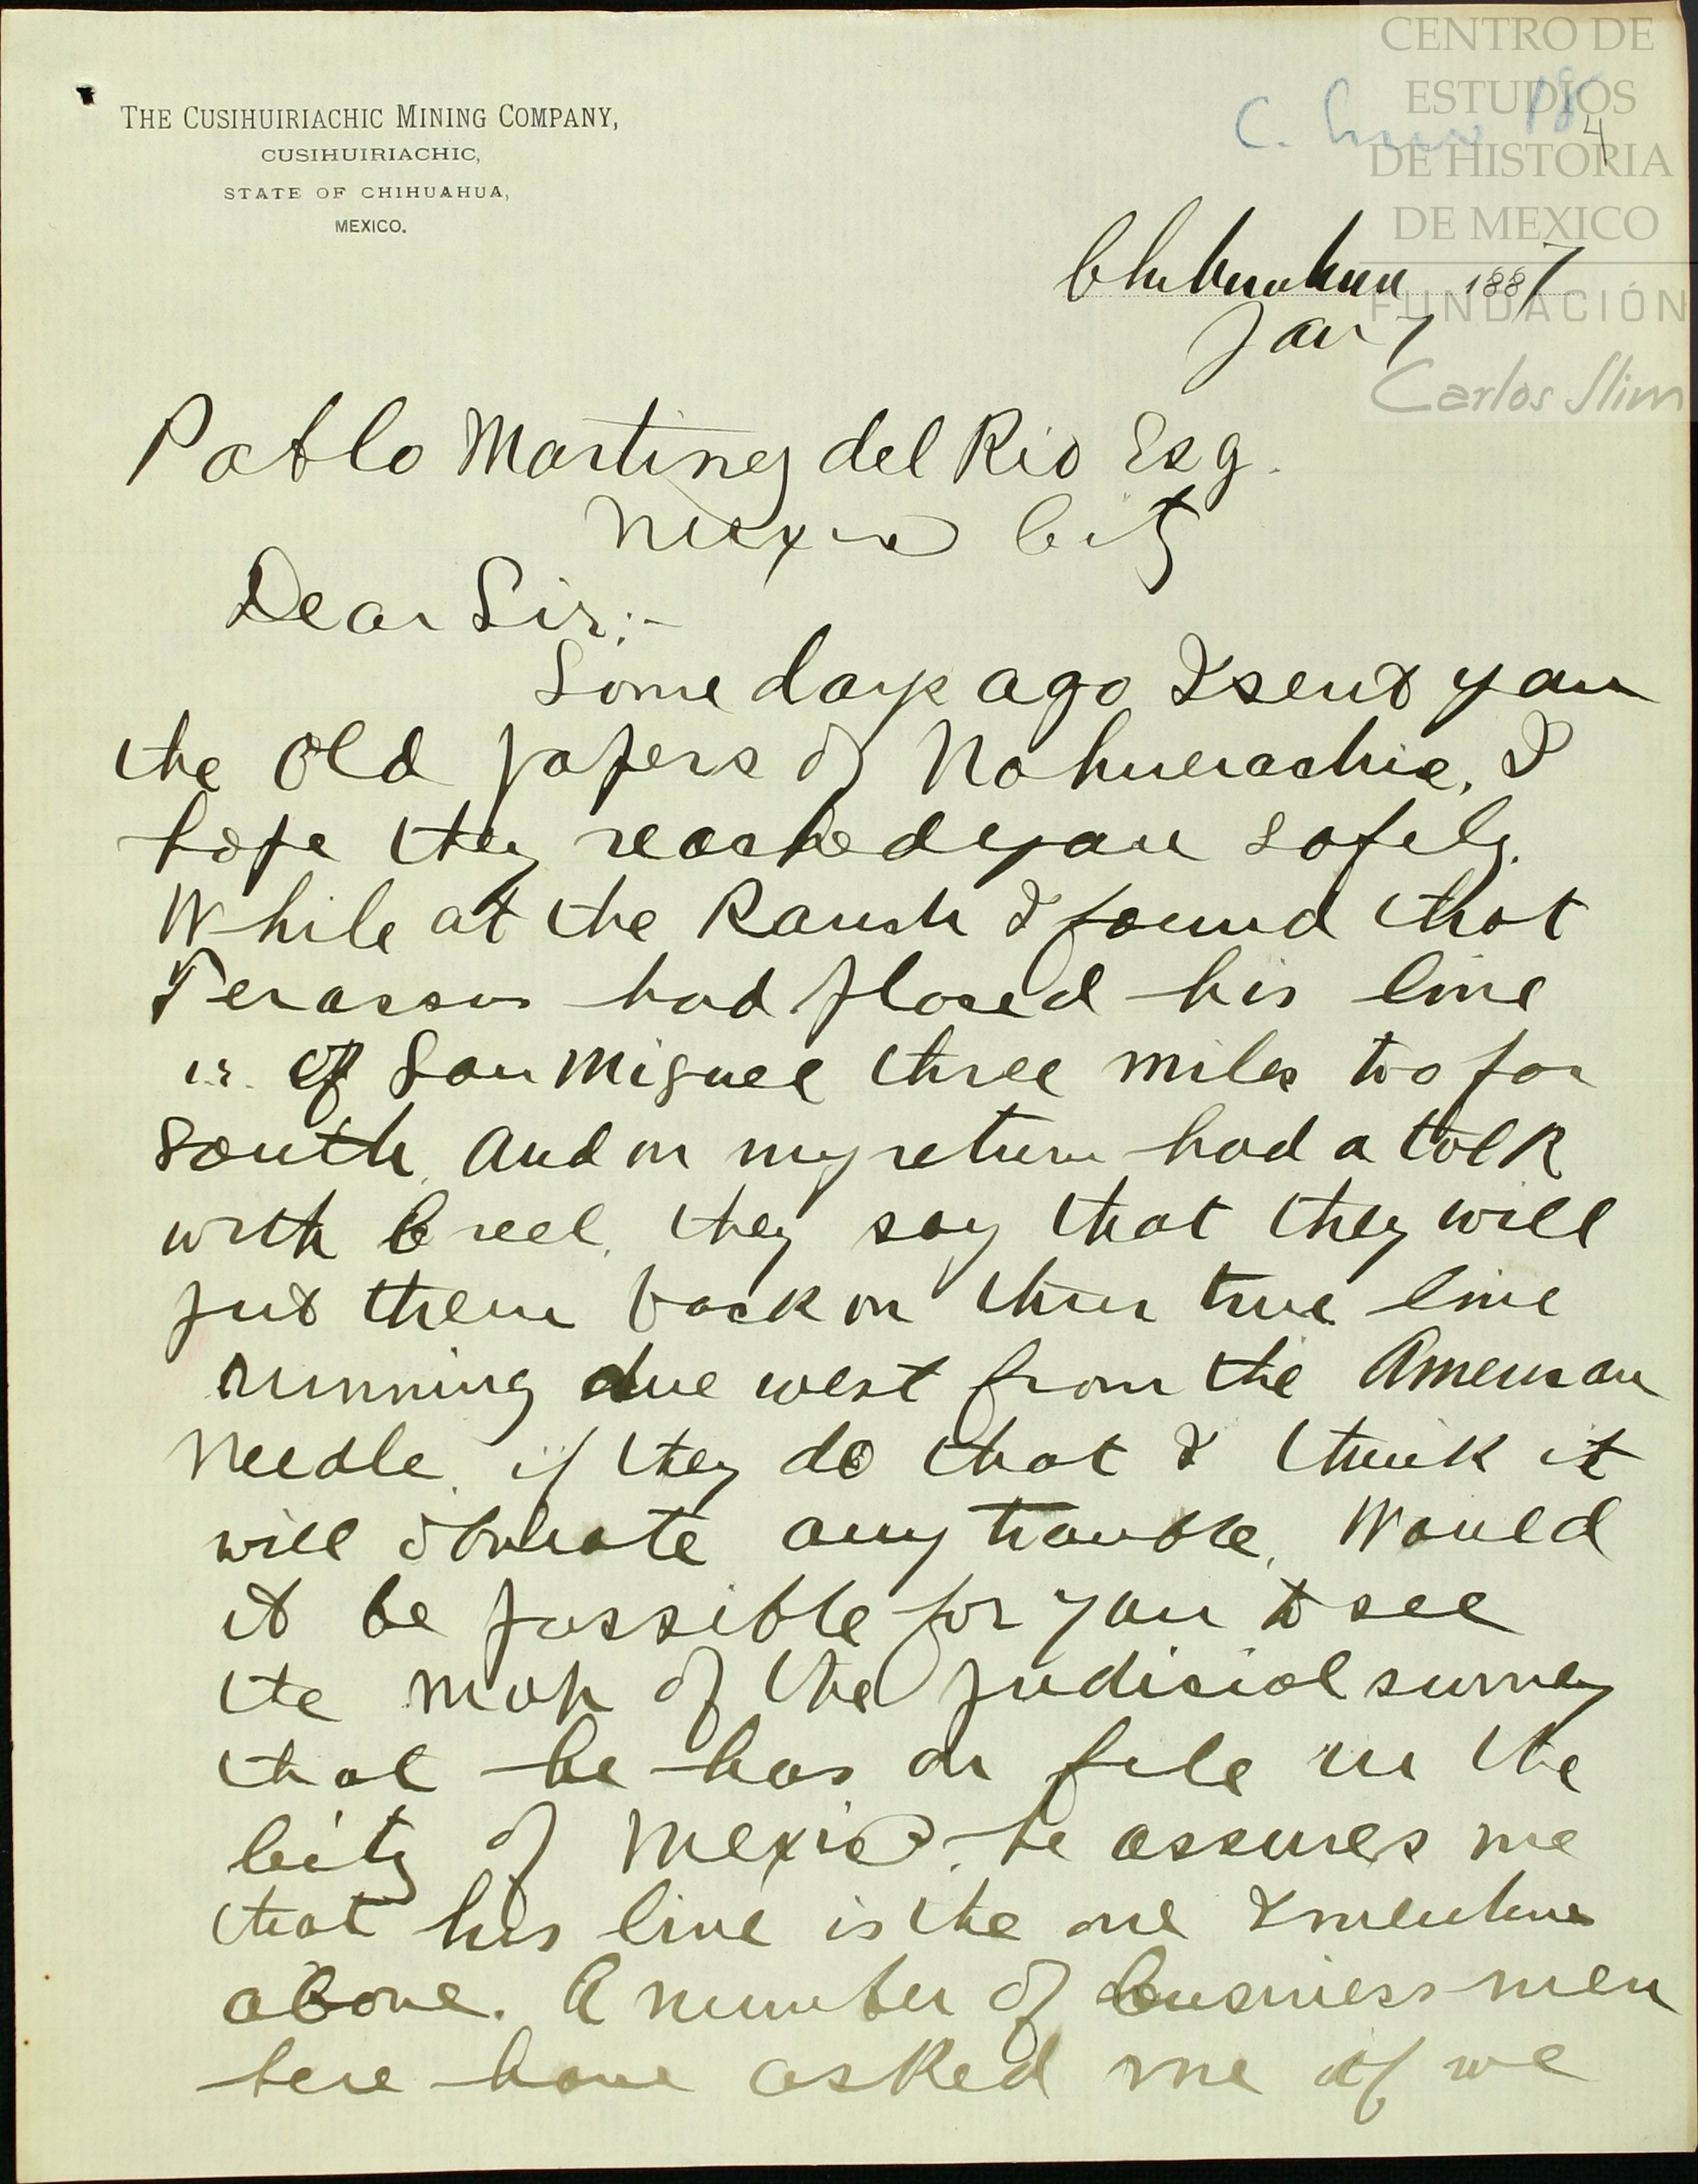 CENTRO DE
ESTUDIOS
DE HISTORIA
DE MEXICO
FUNDACIÓN
Carlos Slim
THE CUSIHUIRIACHIC MINING COMPANY,
CUSIHUIRIACHIC,
STATE OF CHIHUAHUA,
MEXICO.
C. 18
4
Chihuahua 1887
Jan 7
Pablo Martinez del Rio Esq.
Mexico City
Dear Sir:-
Some days ago I sent you
the old papers of Nahuerachic, I
hope they reached you safely.
While at the Ranch I found that
Terassas had placed his line
of San Miguel three miles too far
south. And on my return had a talk
with Creel, they say that they will
put them back on their true line
running due west from the American
Needle, if they do that I think it
will obviate any trouble. Would
it be possible for you to see
the map of the judicial survey
that he has on file in the
City of Mexico. he assures me
that his line is the one I mention
above. A number of business men
here have asked me if we